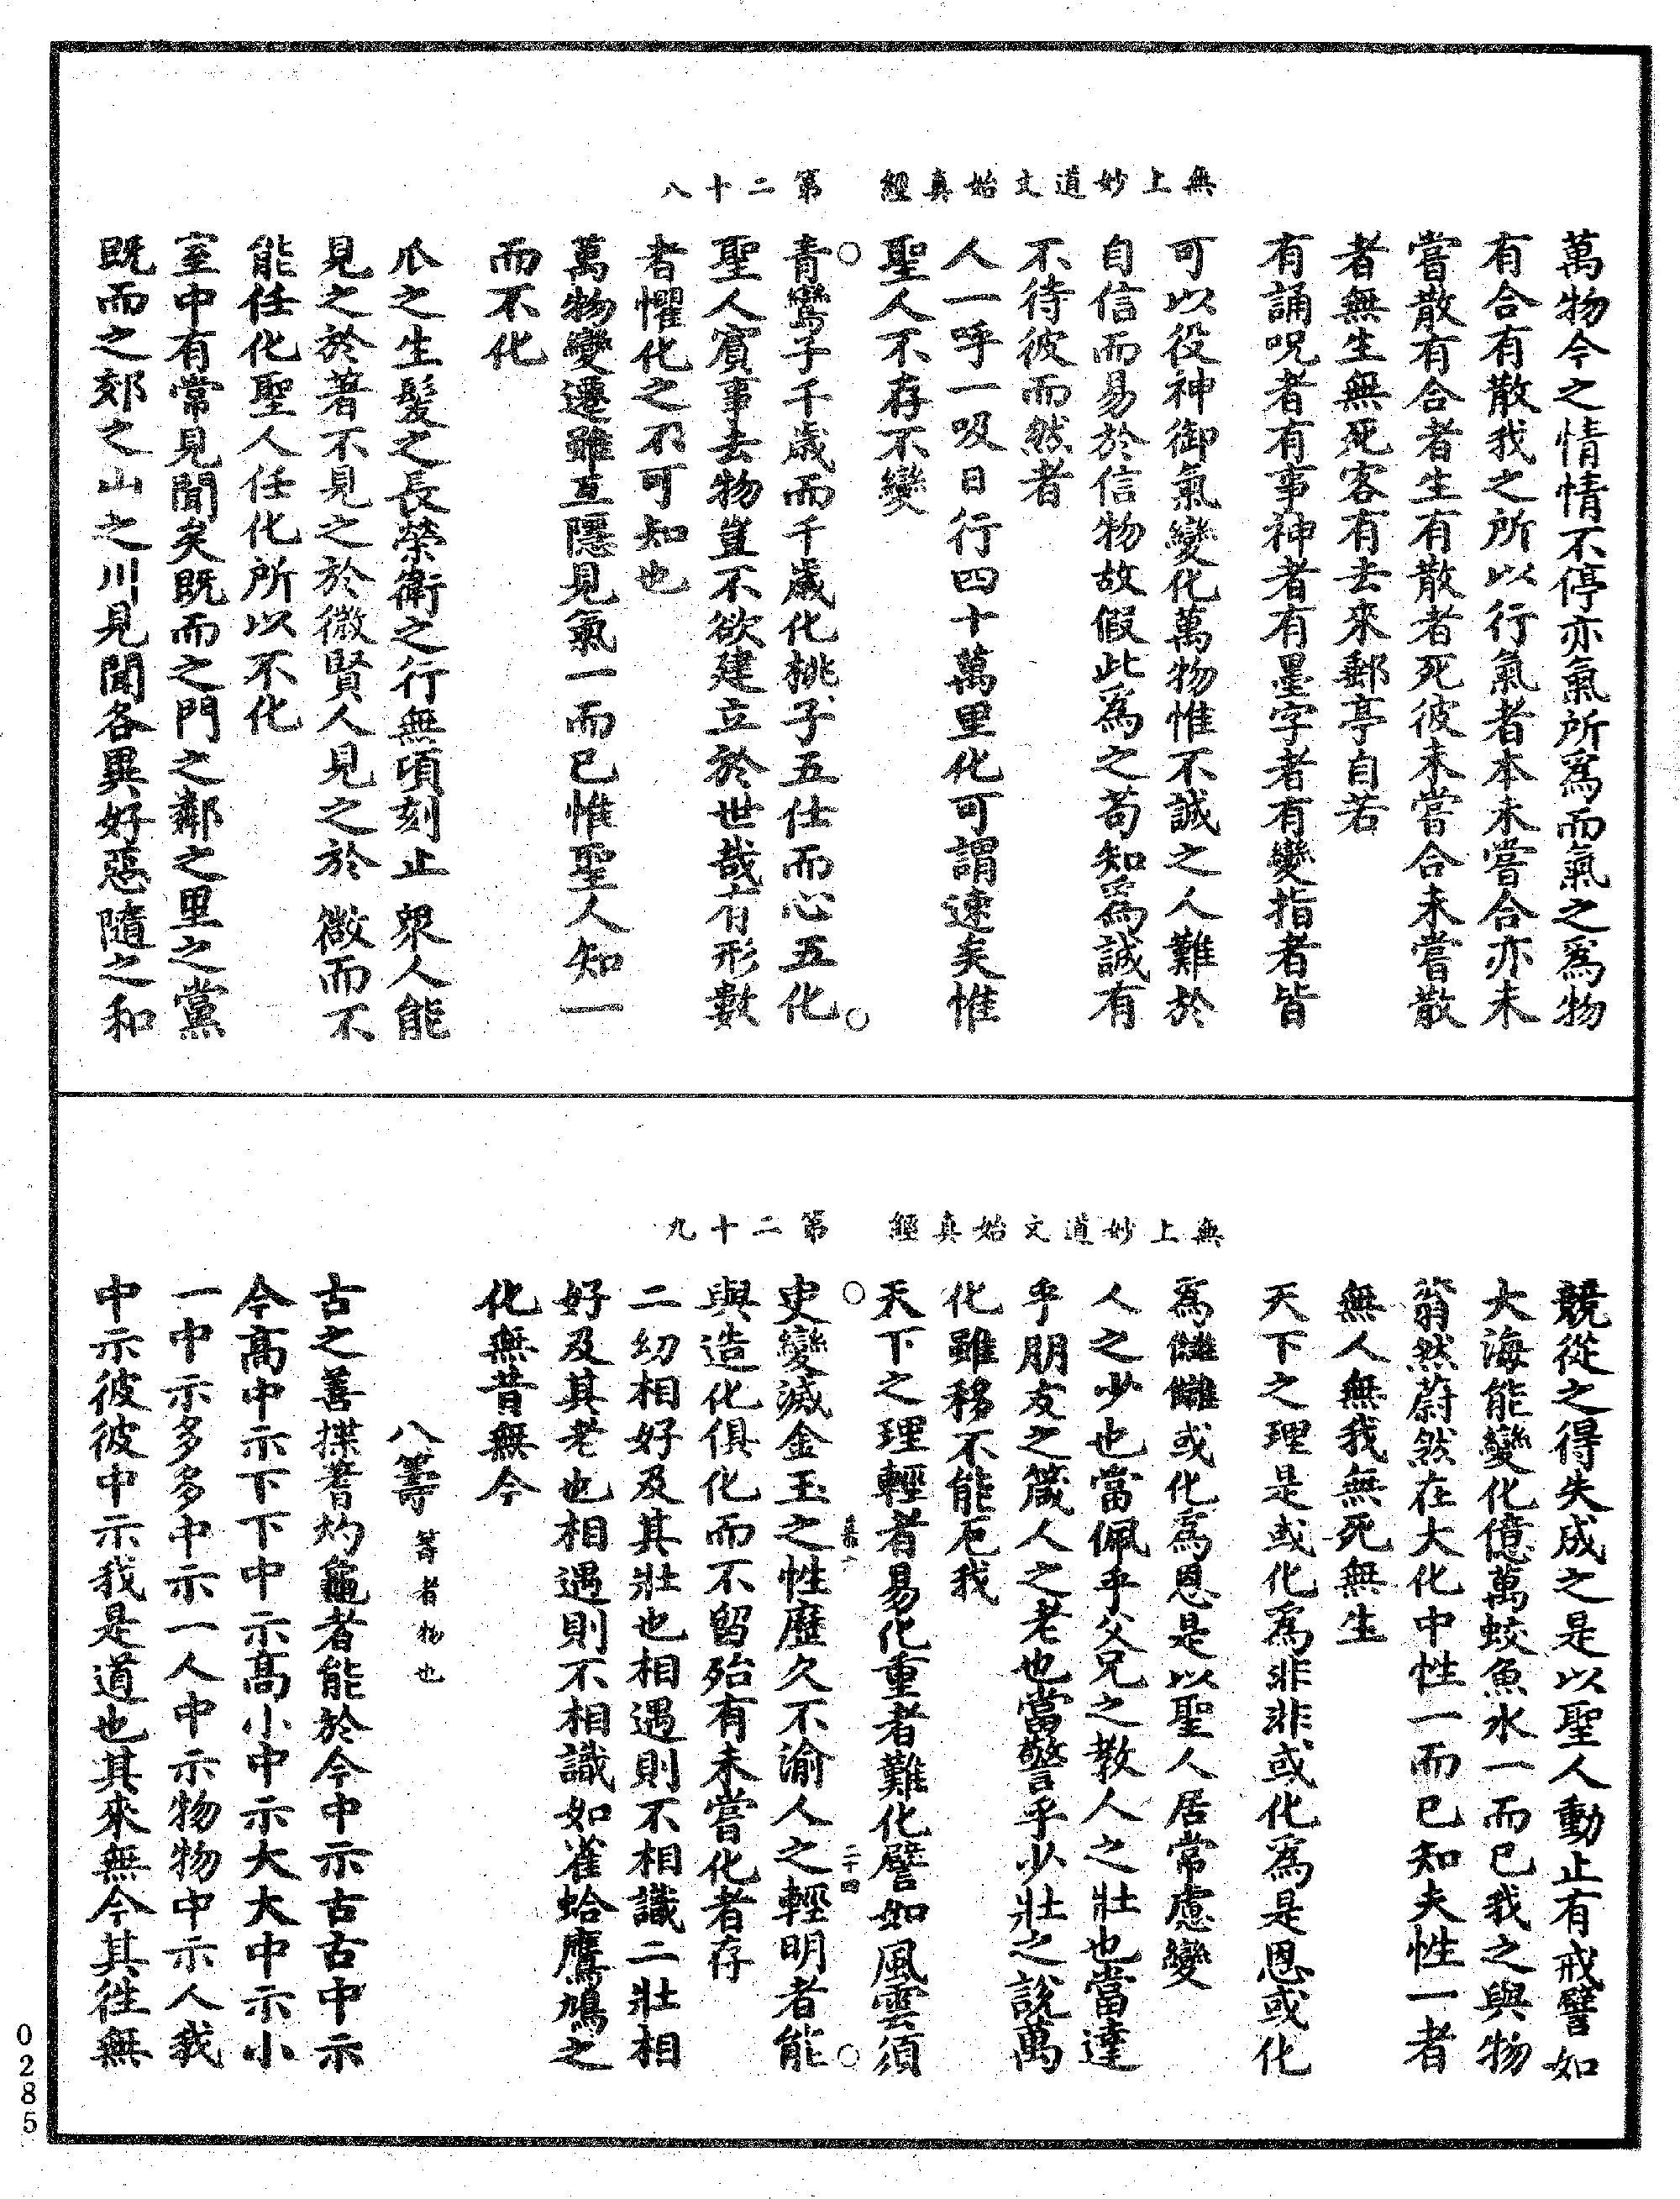 無上妙道文始真經　第二十八
萬物今之情情不停亦氣所爲而氣之爲物
有合有散我之所以行氣者本未嘗合亦未
嘗散有合者生有散者死彼未嘗合未嘗散
者無生無死客有去來郵亭自若
有誦呪者有事神者有墨字者有變指者皆
可以役神御氣變化萬物惟不誠之人難於
自信而易於信物故假此爲之苟知爲誠有
不待彼而然者
人一呼一吸日行四十萬里化可謂速矣惟
聖人不存不變
青鸞子千歲而千歲化桃子五仕而心五化
聖人賓事去物豈不欲建立於世哉有形數
者懼化之不可知也
萬物變遷雖互隱見氣一而已惟聖人知一
而不化
爪之生髮之長榮衛之行無頃刻止衆人能
見之於著不見之於微賢人見之於微而不
能任化聖人任化所以不化
室中有常見聞矣既而之門之鄰之里之黨
既而之郊之山之川見聞各異好惡隨之和
無上妙道文始真經　第二十九
競從之得失成之是以聖人動止有戒譬如
大海能變化億萬蛟魚水一而已我之與物
蓊然蔚然在大化中性一而已知夫性一者
無人無我無死無生
天下之理是或化爲非非或化爲是恩或化
爲讎讎或化爲恩是以聖人居常慮變
人之少也當佩乎父兄之教人之壯也當達
乎朋友之箴人之老也當警乎少壯之說萬
化雖移不能厄我
天下之理輕者易化重者難化譬如風雲須
二十四
臾變滅金玉之性歷久不渝人之輕明者能
與造化俱化而不留殆有未嘗化者存
二幼相好及其壯也相遇則不相識二壯相
好及其老也相遇則不相識如雀蛤鷹鳩之
化無昔無今
八籌 籌者物也
古之善揲蓍灼龜者能於今中示古古中示
今高中示下下中示高小中示大大中示小
一中示多多中示一人中示物物中示人我
中示彼彼中示我是道也其來無今其往無
0285